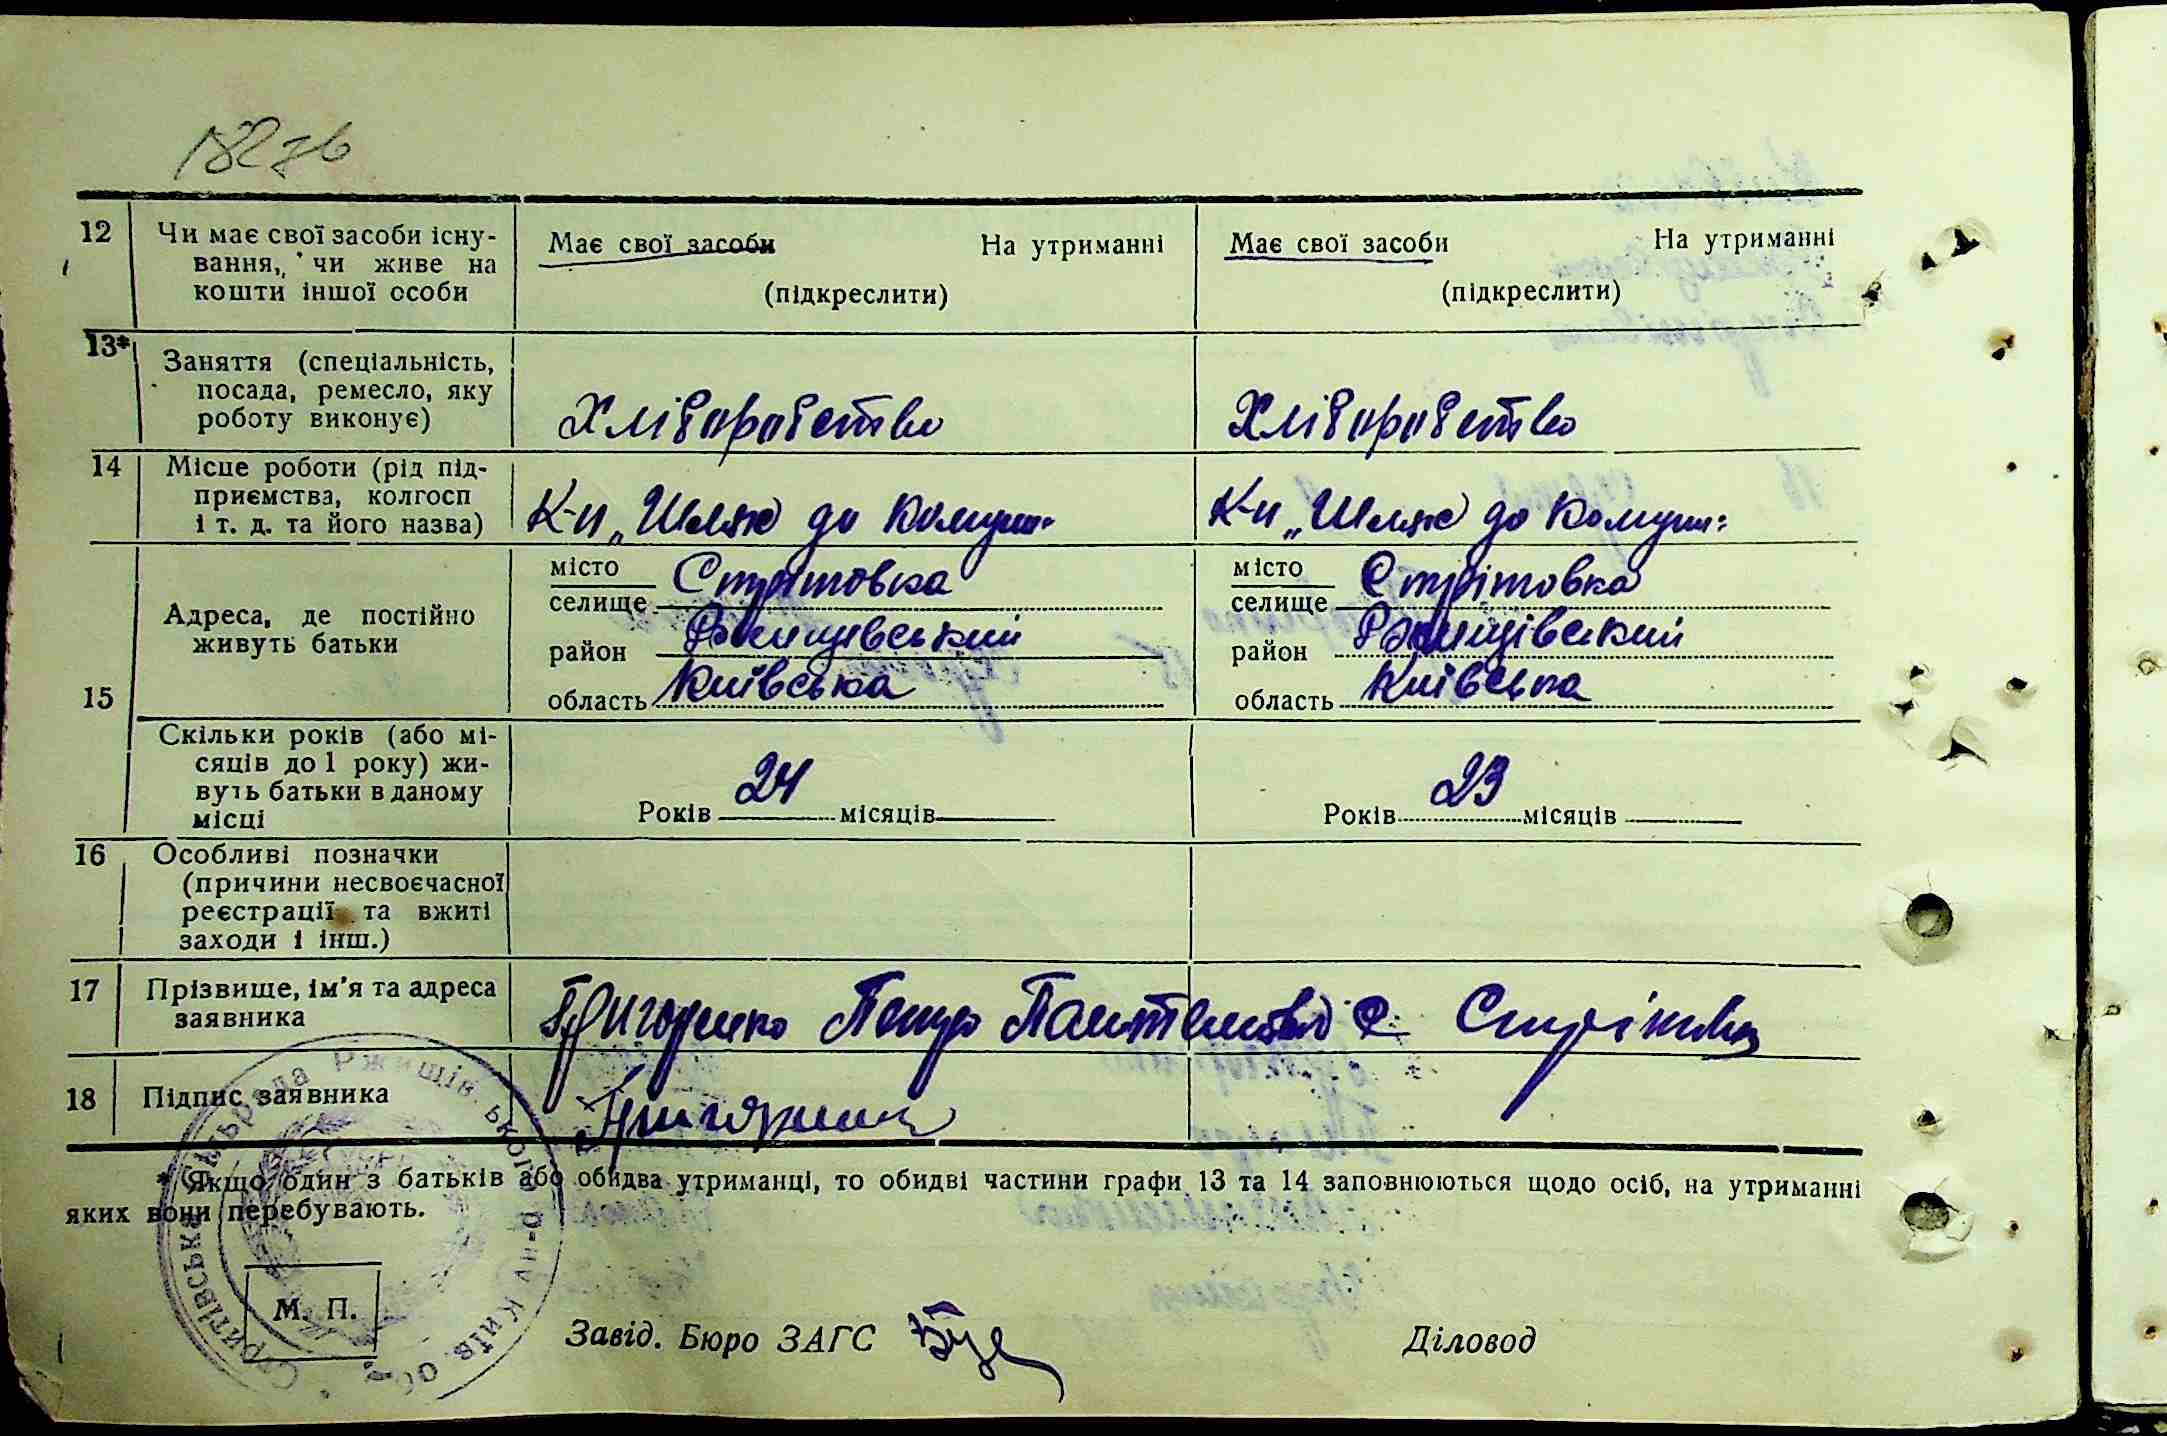 182 зв
12 Чи має свої засоби існу- Має свої засоби На утриманні Має свої засоби На утриманні
вання, чи живе на
кошти іншої особи (підкреслити) (підкреслити)
13* Заняття (спеціальність,
посада, ремесло, яку
роботу виконує) Хліборобство Хліборобство
14 Місце роботи (рід під-
приємства, колгосп
і т. д. та його назва) К-п „Шлях до Комуни" К-п „Шлях до Комуни"
15 Адреса, де постійно
живуть батьки
місто
селище Стрітовка
район Ржищівський
область Київська
місто
селище Стрітовка
район Ржищівський
область Київська
Скільки років (або мі-
сяців до 1 року) жи-
вуть батьки в даному
місці
Років 24 місяців Років 23 місяців
16 Особливі позначки
(причини несвоєчасної
реєстрації та вжиті
заходи і інш.)
17 Прізвище, ім'я та адреса
заявника
Григоренко Пантелимон с
18 Підпис заявника
* Якщо один з батьків або обидва утриманці, то обидві частини графи 13 та 14 заповнюються щодо осіб, на утриманні
яких вони перебувають.
М. П.
Завід. Бюро ЗАГС Діловод